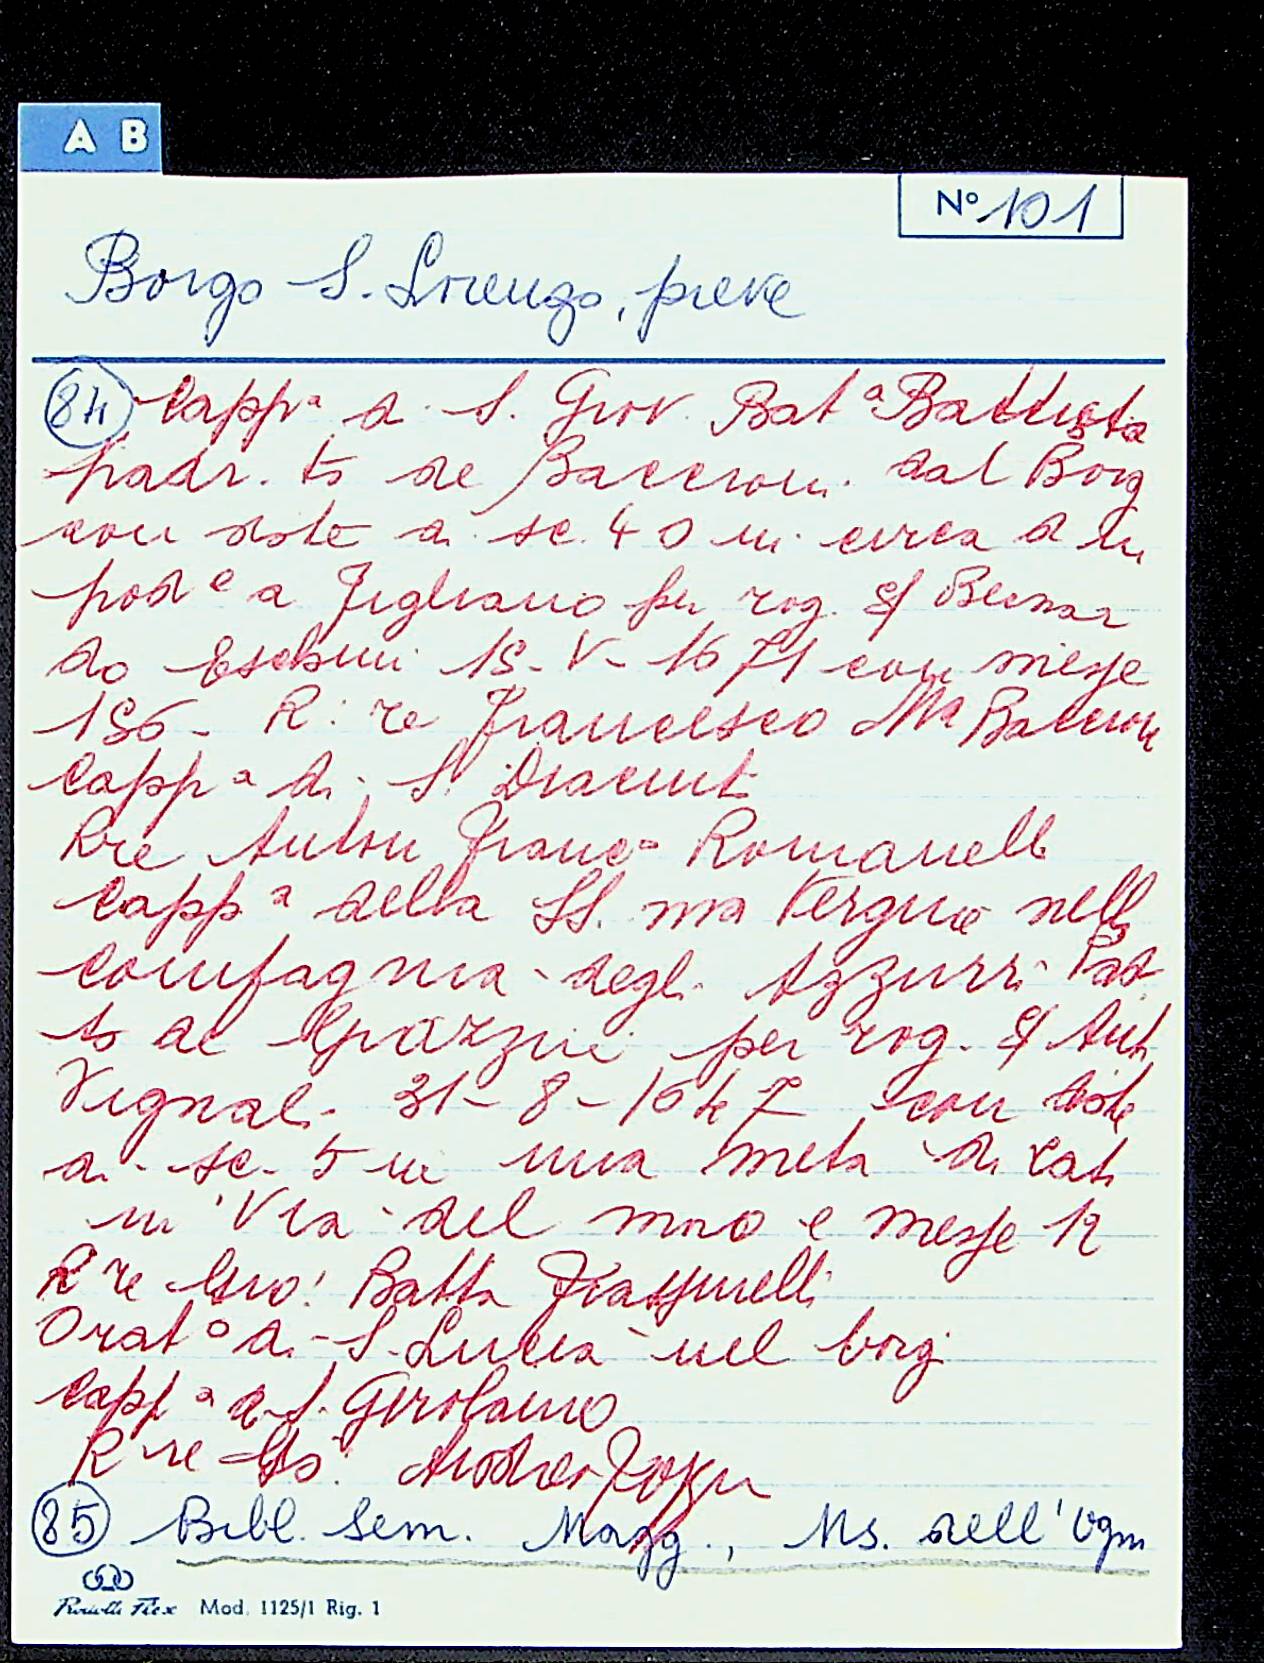 A B
Nº 101
Borgo S. Lorenzo, pieve
84 Capp a di S. Giov. Bat a Battista
padr. to de Baccioni dal Borg
con dote di sc. 40 in circa d un
pod e a Figliano per rog. S/ Bernar
do 15-V-1671 con messe
156- R: re Francesco Ma Baccion
Capp a di S. Diacint
Rre Anton Franc o Romanelli
Capp a della SS. ma Vergine nell
Compagnia degli Azzurri Pad
to de per rog. S/ Ant
Vignali 31-8-1647 con dote
di sc. 5 in una meta di cat
in Via del mno e messe 12
R re Gio: Batta Frassinelli
Orat o di S. Lucia nel borg
Capp a di S. Girolamo
R re Andrea
85 Bibl. Sem. Magg., Ms. dell'Ugni
Mod. 1125/1 Rig. 1